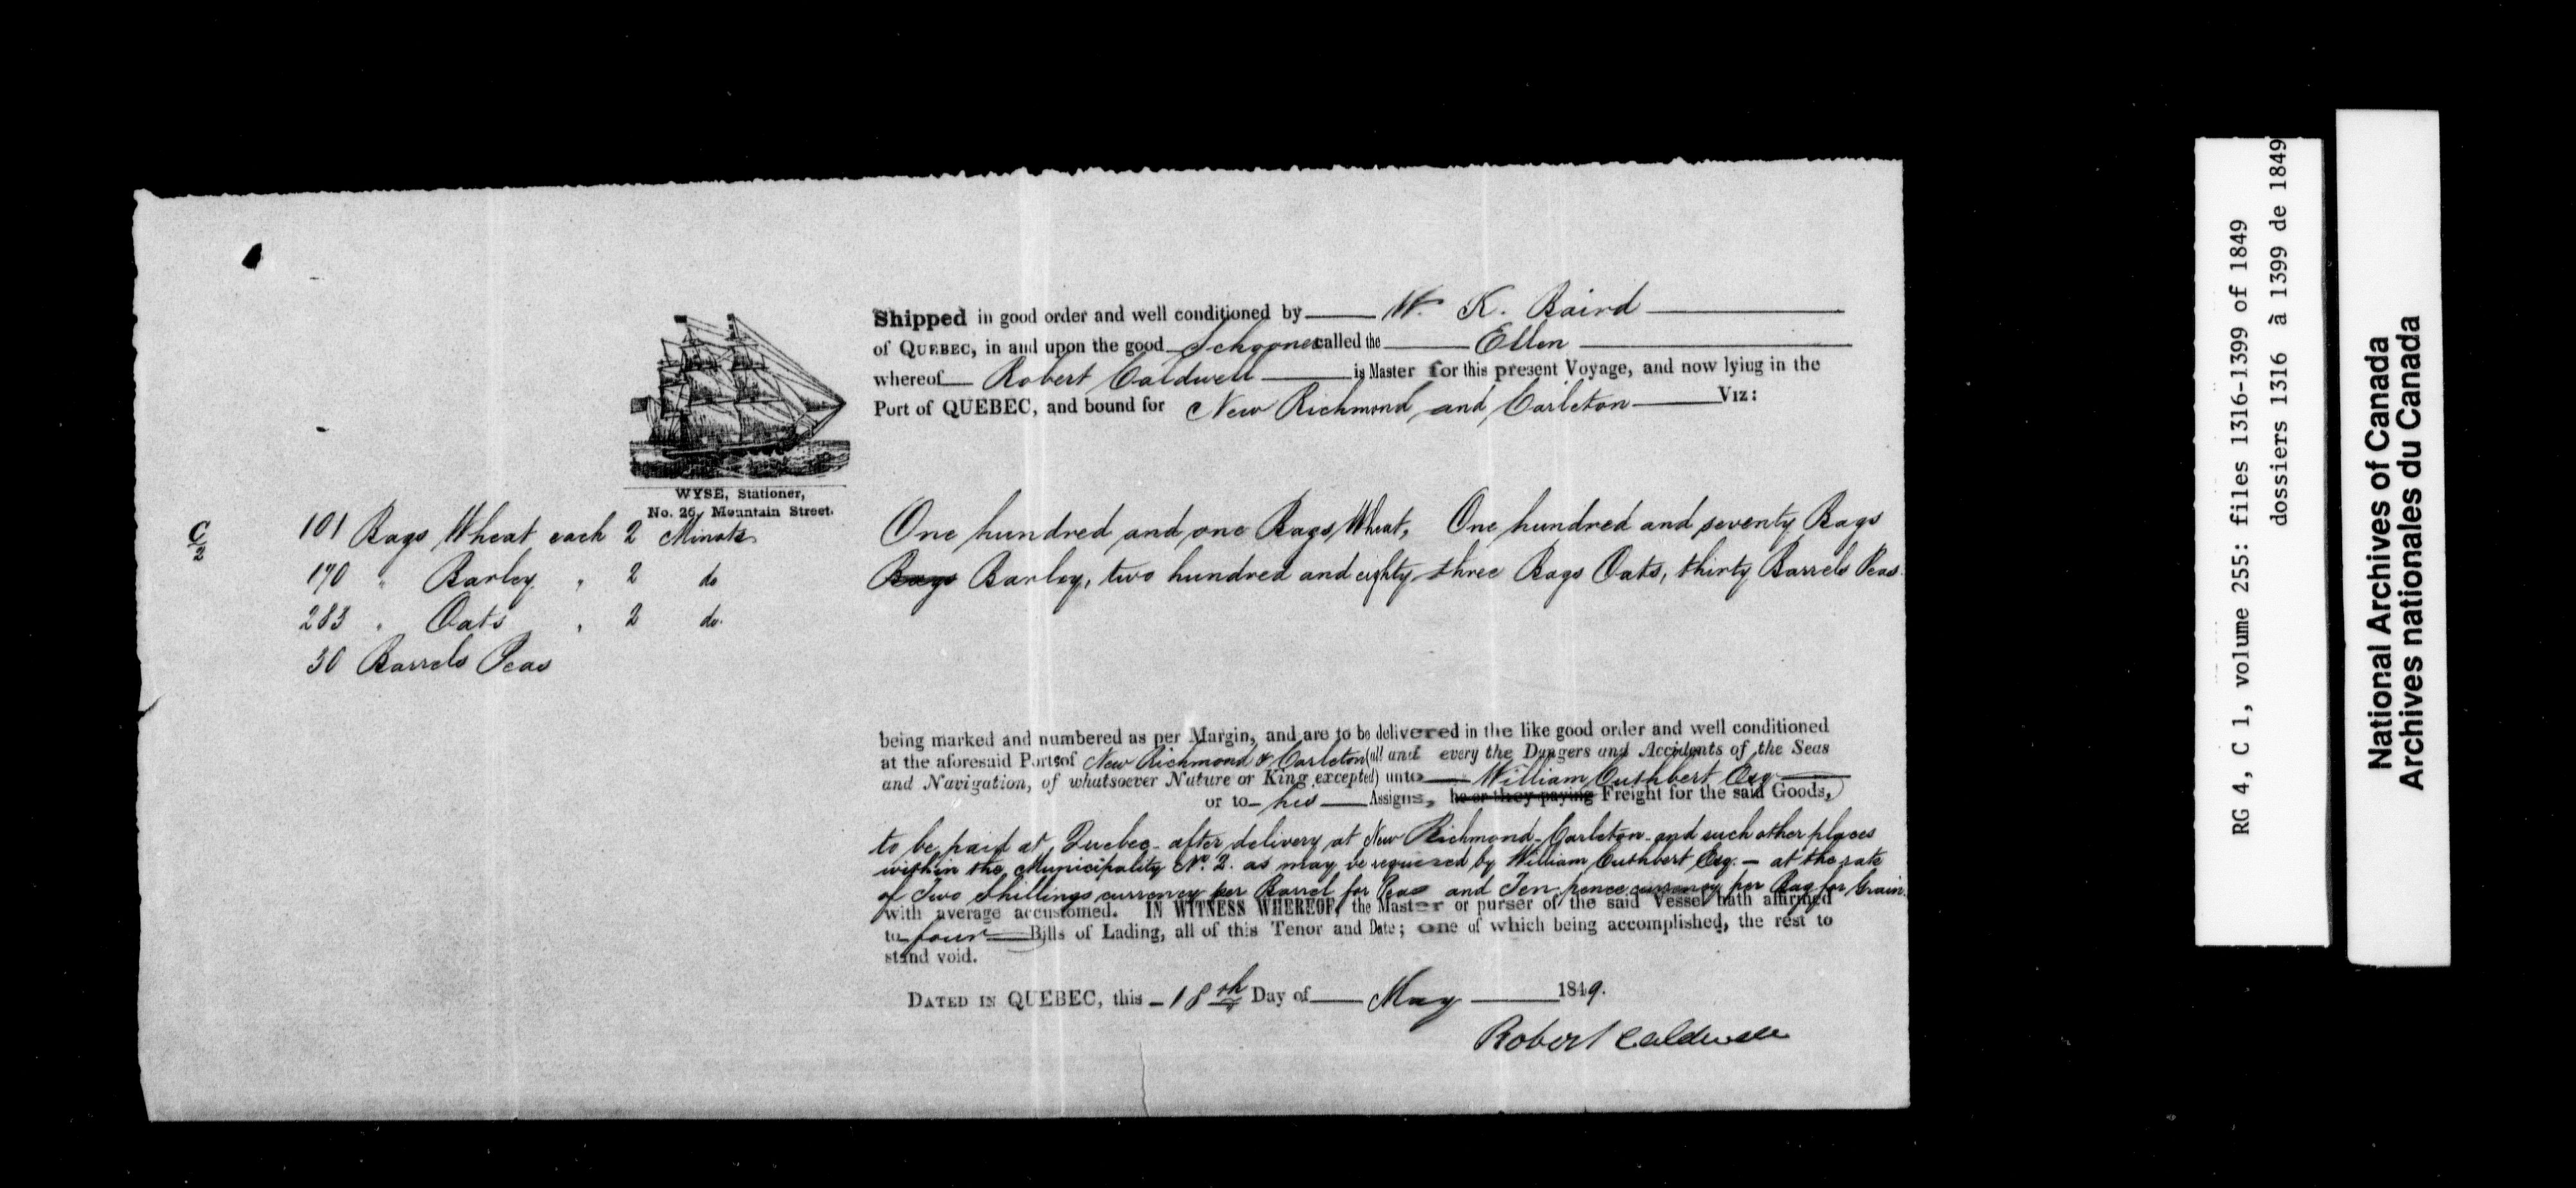 Shipped in good order and well conditioned by W. K. Baird
of QUEBEC, in and upon the good Schooner called the Ellen
whereof Robert Caldwell is Master for this present Voyage, and now lying in the
Port of QUEBEC, and bound for New Richmond and Carleton VIZ:
WYSE, Stationer,
No. 26, Mountain Street.
C/2
101 Bags Wheat each 2 Minots
170 " Barley " 2 do
283 " Oats " 2 do.
30 Barrels Peas
One hundred and one Bags Wheat, One hundred and seventy Bags
Bags Barley, two hundred and eighty three Bags Oats, thirty Barrels Peas.
being marked and numbered as per Margin, and are to be delivered in the like good order and well conditioned
at the aforesaid Ports of New Richmond & Carleton (all and every the Dangers and Accidents of the Seas
and Navigation, of whatsoever Nature or King excepted) unto William Cuthbert Esq.
or to his Assigns, he or they paying Freight for the said Goods,
to be paid at Quebec after delivery at New Richmond, Carleton and such other places
within the Municipality No. 2. as may be required by William Cuthbert Esq. – at the rate
of Two Shillings currency per Barrel for Peas and Ten pence currency per Bag for Grain.
with average accustomed. IN WITNESS WHEREOF, the Master or purser of the said Vessel hath affirmed
to four Bills of Lading, all of this Tenor and Date; one of which being accomplished, the rest to
stand void.
DATED IN QUEBEC, this 18th Day of May 1849.
Robert Caldwell
RG 4, C 1, volume 255: files 1316-1399 of 1849
dossiers 1316 à 1399 de 1849
National Archives of Canada
Archives nationales du Canada